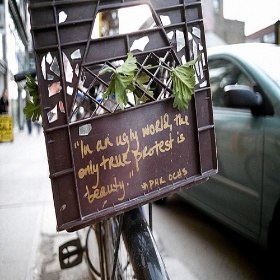 "In an ugly world, the
only true protest is
beauty."
~PHIL OCHS